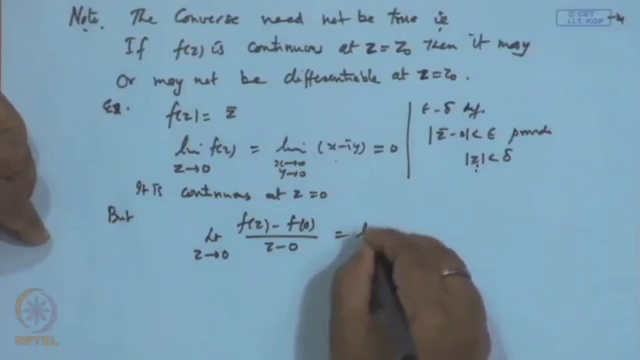 Note. The Converse need not be true ie
© CET
I.I.T. KGP
If f(z) is continuous at z = z₀ then it may
or may not be differentiable at z = z₀.
Ex. f(z) = z̄
lim z→0 f(z) = lim x→0 y→0 (x-iy) = 0
ε-δ def.
|z̄-0| < ε provide
|z| < δ
It is continuous at z = 0
But
lt z→0 f(z) - f(0) / z-0 =
NPTEL